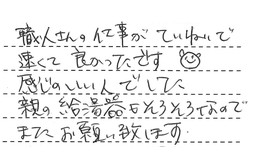 職人さんの仕事がていねいで
速くて良かったです
感じのいい人でした
親の給湯器もそろそろなので
またお願い致します